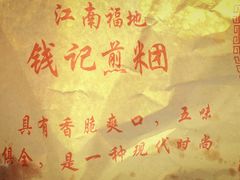 江南福地
钱记煎米团
具有香脆爽口，五味
俱全，是一种现代时尚